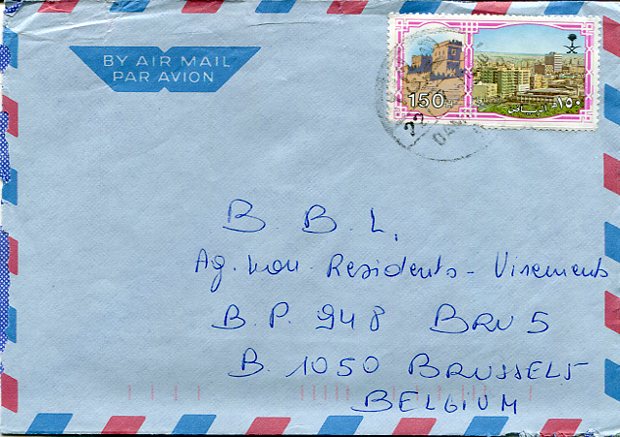 BY AIR MAIL
PAR AVION
150 الرياض ١٥٠
22
DA
B. B. L.
Ag. non Residents - Virements
B.P. 948 BRU 5
B. 1050 BRUSSELS
BELGIUM